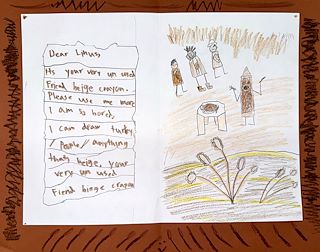 Dear Linus
Its your very un used
Friend beige crayon.
Please use me more
I am so bord.
I can draw turky
/ People // anything
thats beige. your
very un used
Fiend binge crayon